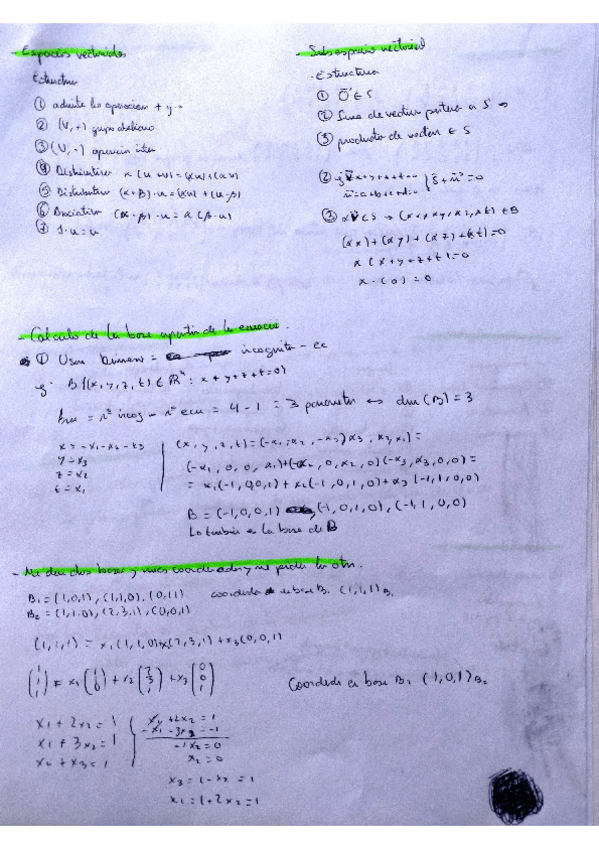 - Espacios vectoriales
Estructura
① admite las operaciones + y ·
② (V, +) grupo abeliano
③ (V, ·) operación
④ Distributiva α(u + v) = (αu) + (αv)
⑤ Distributiva (α+β)·u = (αu) + (u·β)
⑥ Asociativa (α·β)·u = α(β·u)
⑦ 1·u = u
- Subespacio vectorial
- Estructura
① 0 ∈ S
② Suma de vectores a S
③ producto de vectores ∈ S
= 0
③ ∈ S → ∈ B
(αx) + (αy) + (αz) + (αt) = 0
α(x + y + z + t) = 0
α·(0) = 0
- Calculo de la base apartir de la ecuacion.
① Usar = incognita - ec
B {(x, y, z, t) ∈ ℝ⁴ : x + y + z + t = 0}
= nº incog - nº ecu = 4 - 1 = 3 parametros ↔ dim (B) = 3
x = -α₁-α₂-α₃
y = α₃
z = α₂
t = α₁
(x, y, z, t) =
(-α₁, 0, 0, α₁) + (-α₂, 0, α₂, 0) (-α₃, α₃, 0, 0) =
= α₁(-1, 0, 0, 1) + α₂(-1, 0, 1, 0) + α₃(-1, 1, 0, 0)
B = (-1, 0, 0, 1), (-1, 0, 1, 0), (-1, 1, 0, 0)
Lo también es la base de B
- Me dan dos bases y unas coordenadas y me piden las otras.
B₁ = (1,0,1), (1,1,0), (0,1,1) coordenadas base B₁ (1,1,1)B₁
B₂ = (1,1,0), (2,3,1), (0,0,1)
(1,1,1) = x₁(1,1,0) + x₂(2,3,1) + x₃(0,0,1)
(1 1 1) = x₁ (1 1 0) + x₂ (2 3 1) + x₃ (0 0 1)
Coordenadas en base B₂ (1,0,1)B₂
x₁ + 2x₂ = 1
x₁ + 3x₂ = 1
x₂ + x₃ = 1
x₁ + 2x₂ = 1
-x₁ - 3x₂ = -1
-1x₂ = 0
x₂ = 0
x₃ = 1 - x₂ = 1
x₁ = 1 + 2x₂ = 1